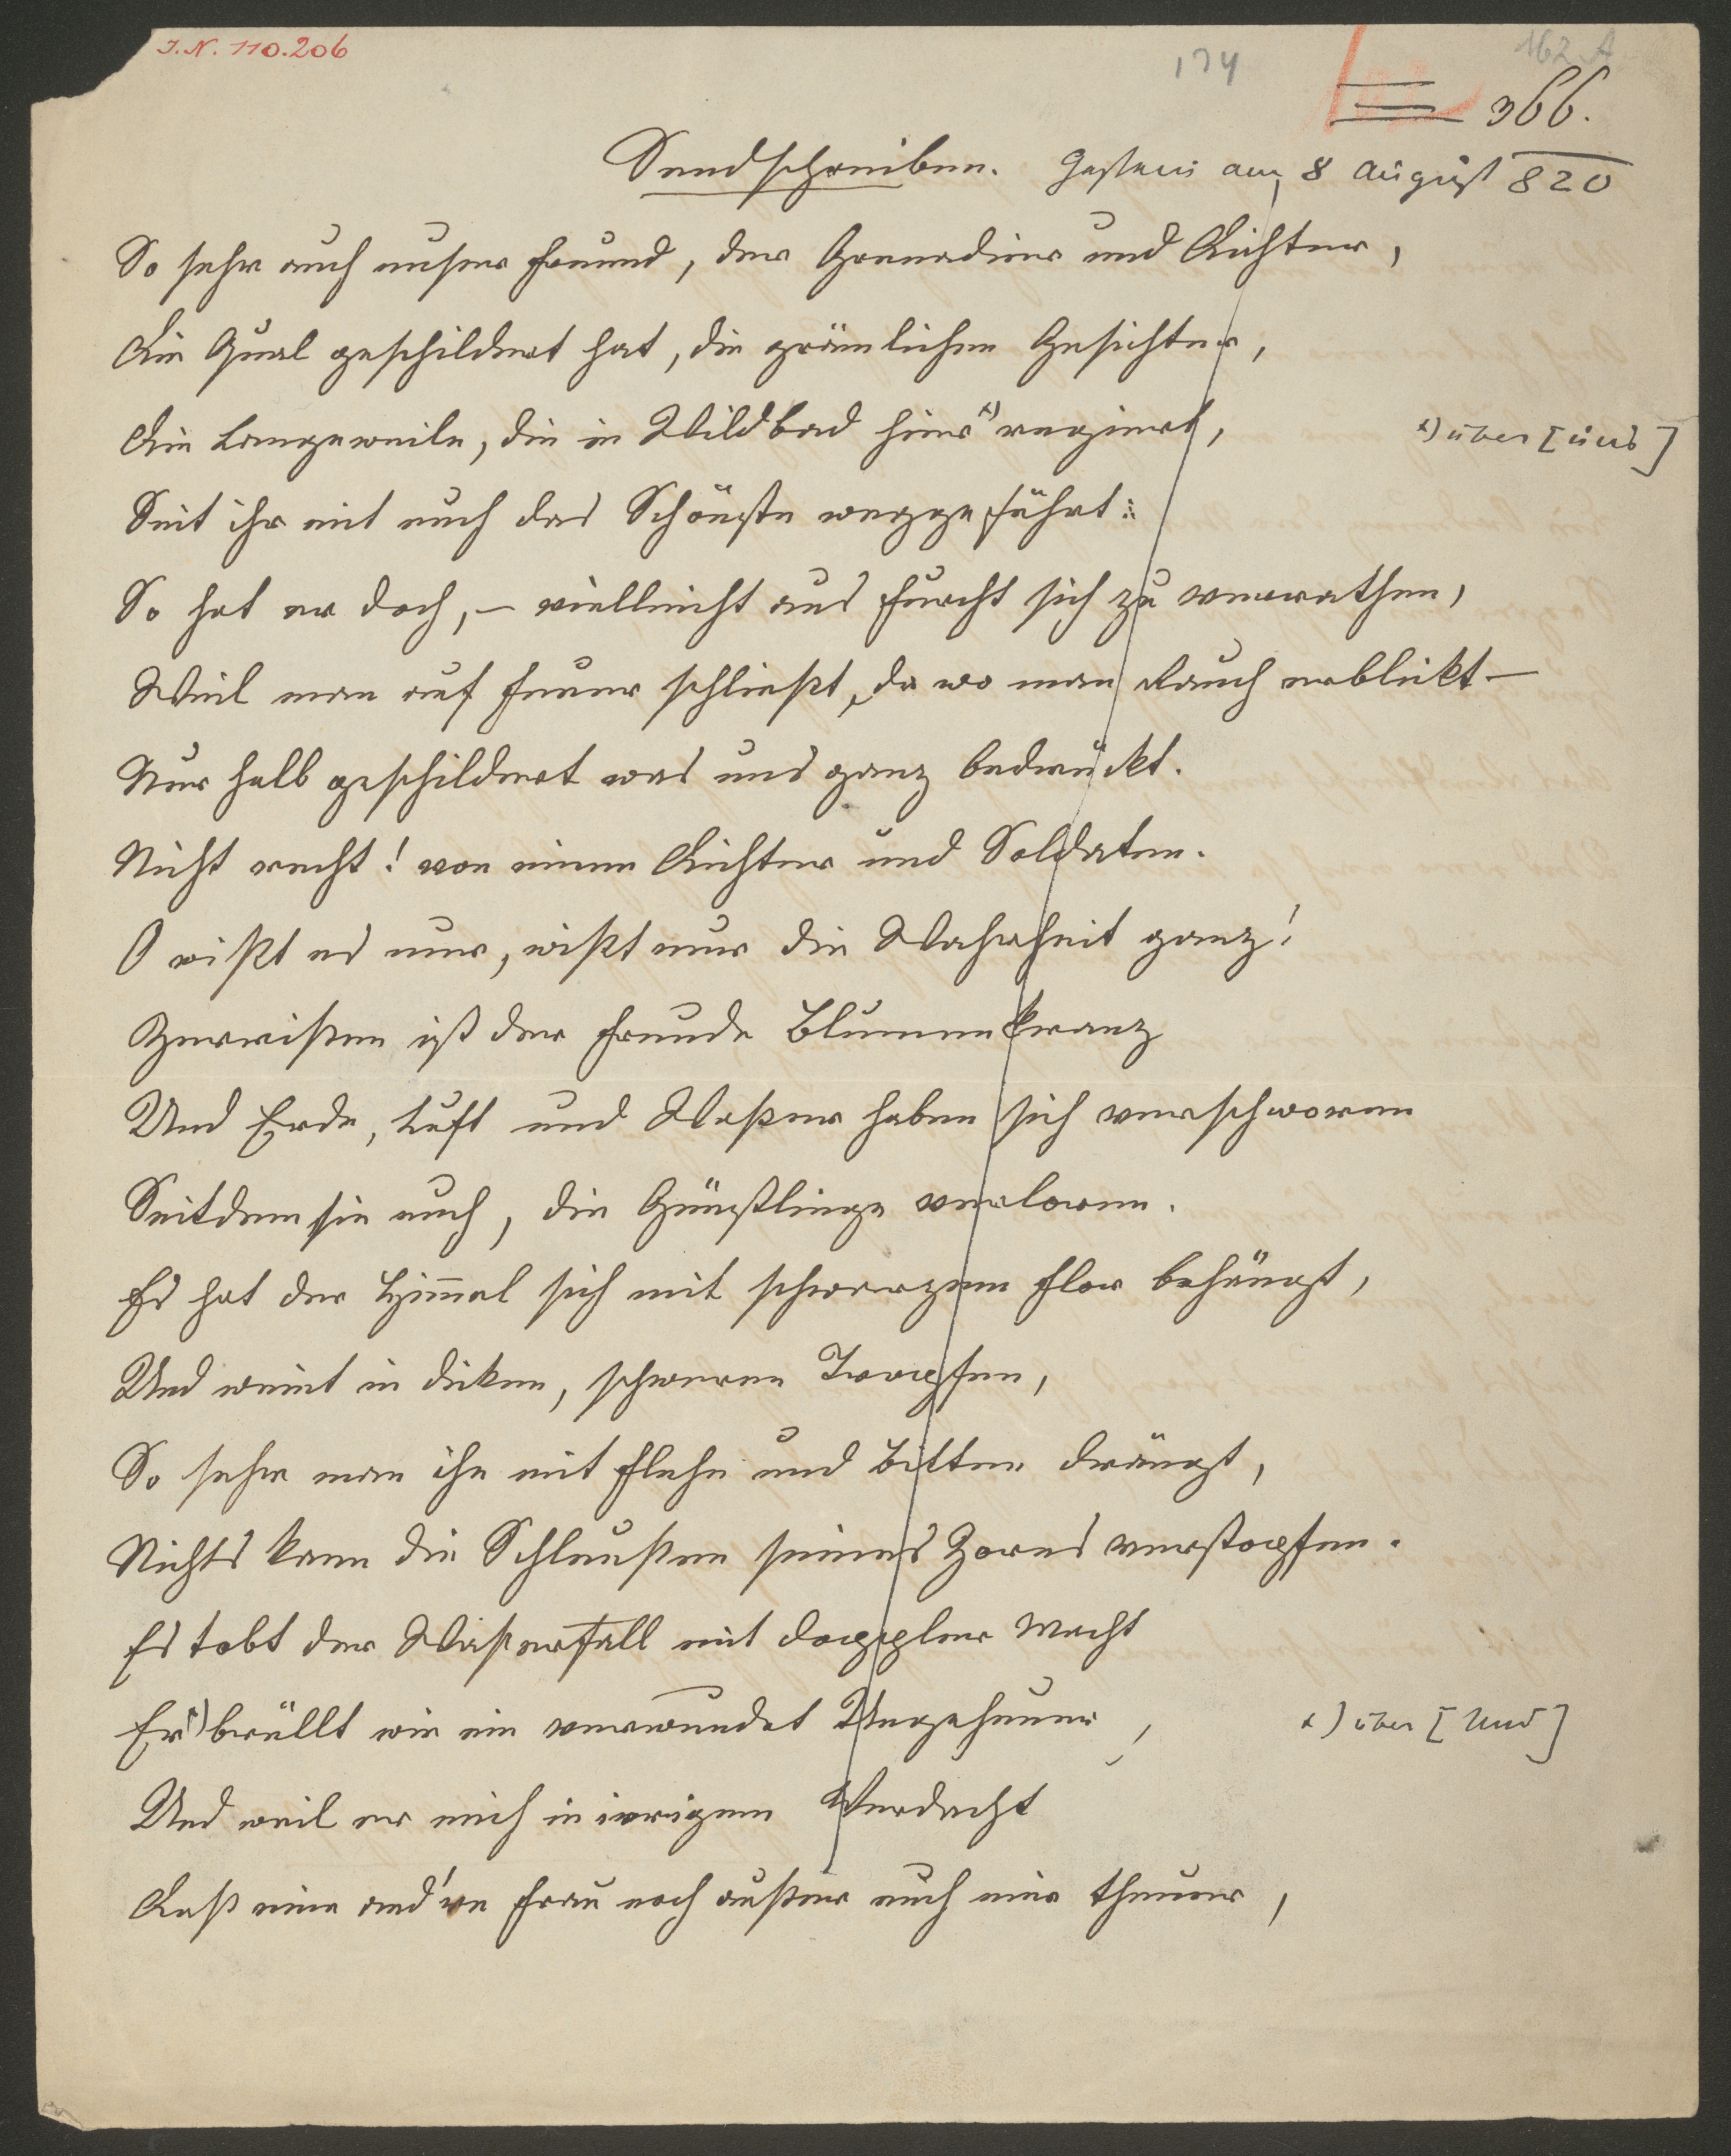 I.N. 110.206
174
162 A
366.
Sendschreiben. Gastein am 8 August 820
So sehr auch unser Freund, der Grenadier und Dichter,
Die Qual geschildert hat, die grämlichen Gesichter,
Die Langeweile, die in Wildbad hier x) regiert,
x) über [uns]
Seit ihr mit euch das Schönste weggeführt:
So hat er doch, – vielleicht aus Furcht sich zu verrathen,
Weil man auf Feuer schließt, da wo man Rauch erblickt –
Nur halb geschildert was uns ganz bedrückt.
Nicht recht! von einem Dichter und Soldaten.
O wißt es nur, wißt nur die Wahrheit ganz!
Zerrißen ist der Freude Blumenkranz
Und Erde, Luft und Waßer haben sich verschworen
Seitdem sie euch, die Günstlinge verloren.
Es hat der Him̅el sich mit schwarzem Flor behängt,
Und weint in dicken, schweren Tropfen,
So sehr man ihn mit Flehn und Bitten drängt,
Nichts kann die Schleußen seines Zornes verstopfen.
Es tobt der Waßerfall mit doppler Macht
Er x) brüllt wie ein verwundet Ungeheuer,
x) über [Und]
Und weil er mich in irrigem Verdacht
Daß eine and're Frau noch außer euch mir theuer,